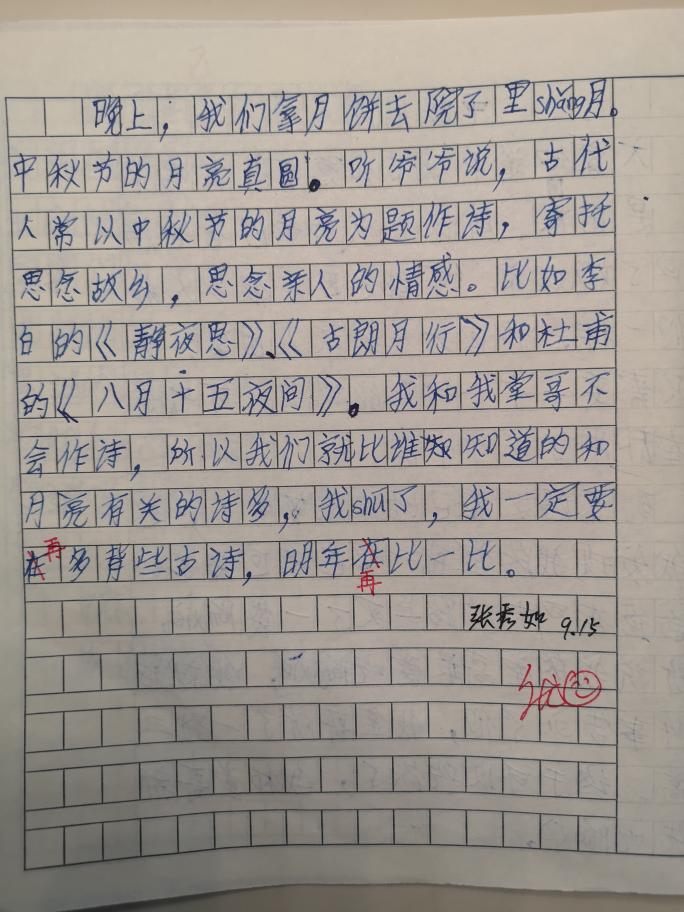 晚上，我们拿月饼去院了里shǎng月。
中秋节的月亮真圆。听爷爷说，古代
人常以中秋节的月亮为题作诗，寄托
思念故乡，思念亲人的情感。比如李
白的《静夜思》、《古朗月行》和杜甫
的《八月十五夜问》。我和我堂哥不
会作诗，所以我们就比谁知道的和
月亮有关的诗多，我shū了，我一定要
在再多背些古诗，明年在比一比。
再
张秀如 9.15
优